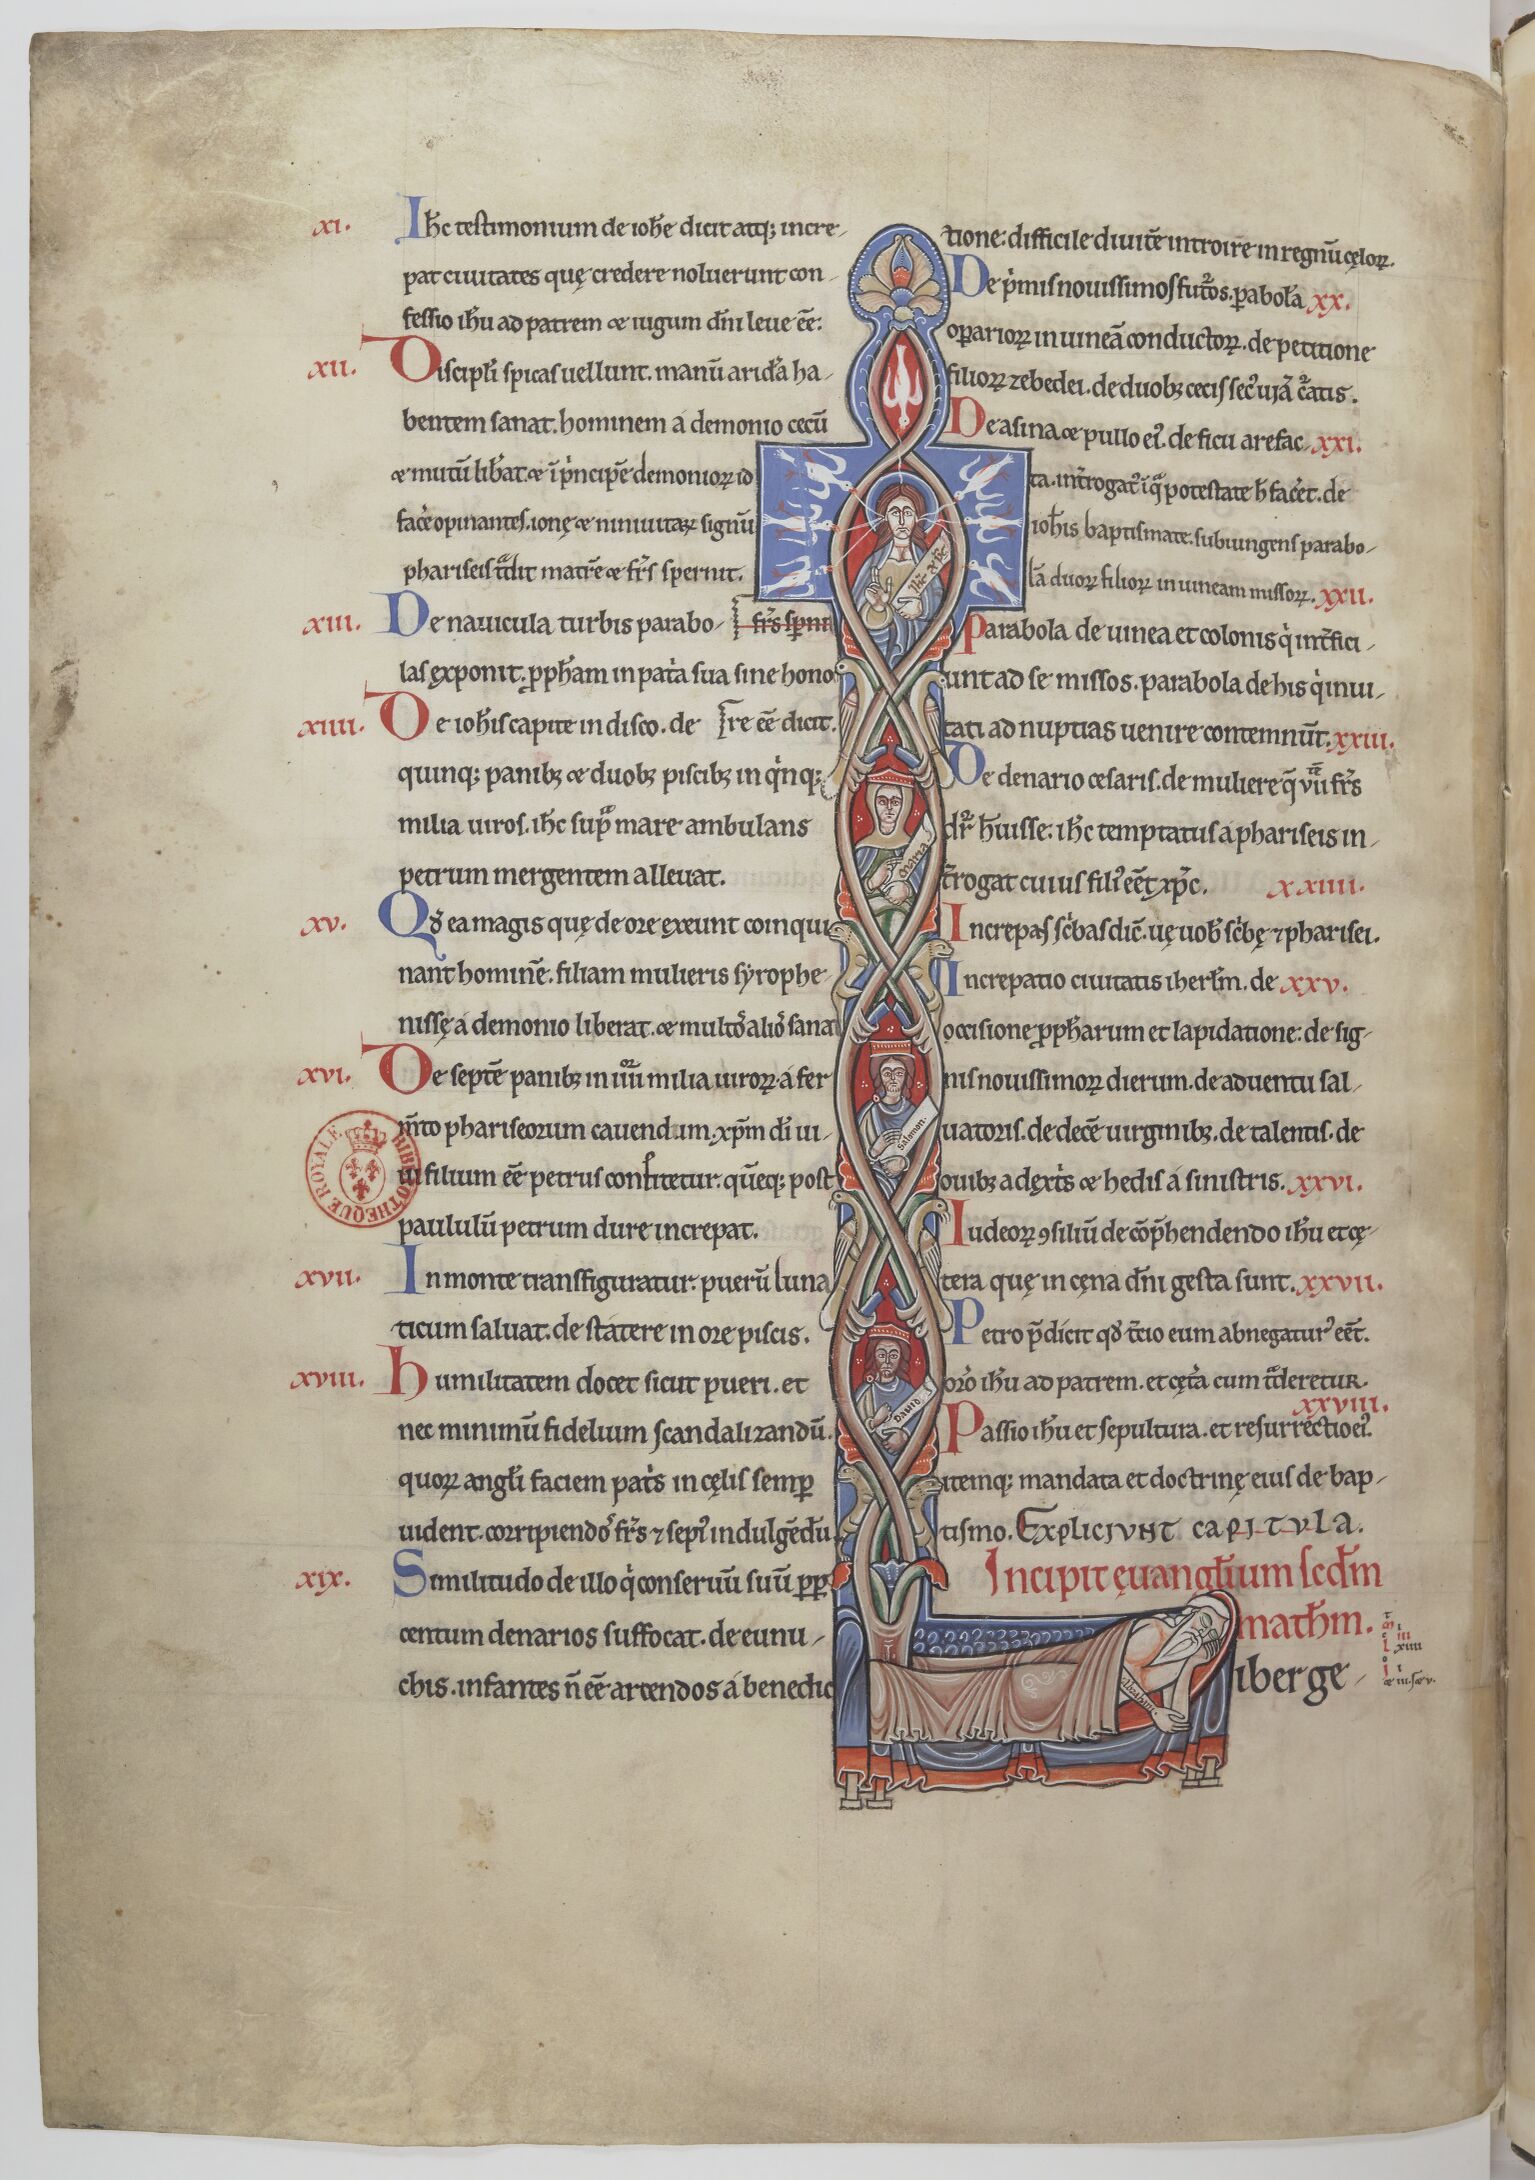 xi. Ihc testimonium de iohe dicit atq; incre-
pat ciuitates quę credere noluerunt con-
fessio ihu ad patrem & iugum dni leue ee:
xii. Discipli spicas uellunt. manū aridā ha-
bentem sanat. hominem a demonio cecū
& mutū libat. & ī pncipē demoniorꝝ id
facē opinantes. ionę & niniuitarꝝ signū
phariseis tdit matrē & frs spernit.
xiii. De nauicula turbis parabo- frs spnit
las exponit. ppham in pata sua sine hono
xiiii. De iohis capite in disco. de re ee dicit.
quinq; panibꝫ & duobꝫ piscibꝫ in qnq;
milia uiros. ihc sup mare ambulans
petrum mergentem alleuat.
xv. Qd ea magis quę de ore exeunt coinqui
nant hominē. filiam mulieris syrophe-
nissę a demonio liberat. & multos alios sana
xvi. De septē panibꝫ in iiii milia uirorꝝ. a fer
mto phariseorum cauendum. xpm di ui-
ui filium ee petrus confitetur. quēq; post
paululū petrum dure increpat.
xvii. In monte transfiguratur. puerū luna
ticum saluat. de statere in ore piscis.
xviii. humilitatem docet sicut pueri. et
nec minimū fidelium scandalizandū.
quorꝝ angli faciem patis in cęlis semp
uident. corripiendos frs ⁊ sepius indulgēdū
xix. Similitudo de illo qi conseruū suū pp
centum denarios suffocat. de eunu-
chis. infantes n ee arcendos a benedic
tione: difficile diuitē introire in regnū cęlorꝝ.
De pmis nouissimos futos. pabola xx.
operariorꝝ in uineā conductorꝝ. de petitione
filiorꝝ zebedei. de duobꝫ cecis sec uia catis.
De asina & pullo ei. de ficu arefac xxi.
ta. introgat i q potestate h facet. de
iohis baptismate. subiungens parabo-
lā duorꝝ filiorꝝ in uineam missorꝝ. xxii.
Parabola de uinea et colonis qi intfici-
unt ad se missos. parabola de his qi inui-
tati ad nuptias uenire contemnūt. xxiii.
De denario cesaris. de muliere q vii frs
dr huisse: ihc temptatus a phariseis in-
trogat cuius fili eet xpc. xxiiii.
Increpas scbas dic. uę uob scbę ⁊ pharisei.
Increpatio ciuitatis iherlm. de xxv.
occisione ppharum et lapidatione: de sig-
nis nouissimorꝝ dierum. de aduentu sal-
uatoris. de decē uirginibꝫ. de talentis. de
ouibꝫ a dextis & hedis a sinistris. xxvi.
Iudeorꝝ ꝯsiliū de cōphendendo ihu et cę-
tera quę in cęna dni gesta sunt. xxvii.
Petro pdicit qd tcio eum abnegatur eet.
oro ihu ad patrem. et cęta cum tderetur.
xxviii.
Passio ihu et sepultura. et resurrectio ei.
itemq; mandata et doctrinę eius de bap-
tismo. Expliciunt capitula.
Incipit ęuanglium scdm
mathm.
iber ge-
ihc xpc
maria
Salomon.
DAVID
BIBLIOTHEQUE ROYALE